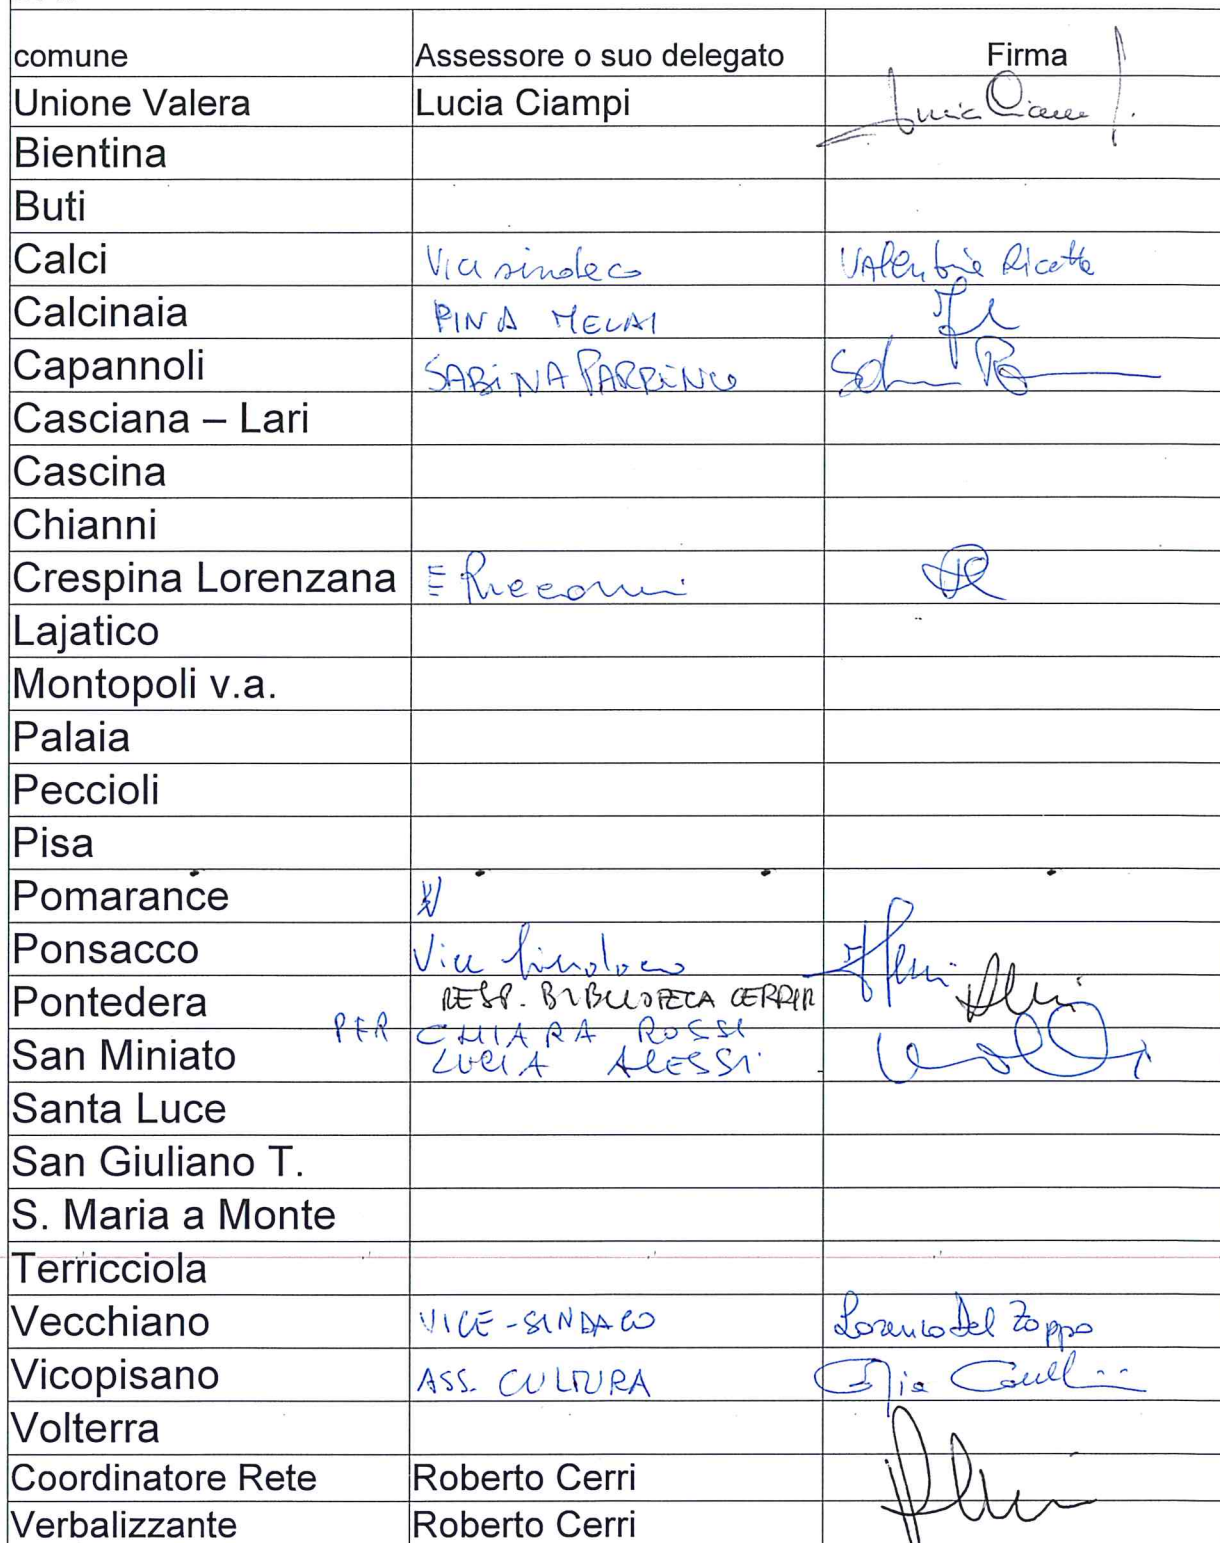 comune Assessore o suo delegato Firma
Unione Valera Lucia Ciampi Lucia Ciampi
Bientina
Buti
Calci Vicesindaco Valentina Ricotta
Calcinaia PINA MELAI
Capannoli SABINA PARRINO
Casciana – Lari
Cascina
Chianni
Crespina Lorenzana
Lajatico
Montopoli v.a.
Palaia
Peccioli
Pisa
Pomarance
Ponsacco Vice Sindaco
Pontedera RESP. BIBLIOTECA CERRI R
PER CHIARA ROSSI
San Miniato LUCIA ALESSI
Santa Luce
San Giuliano T.
S. Maria a Monte
Terricciola
Vecchiano VICE-SINDACO Lorenzo Del Zoppo
Vicopisano ASS. CULTURA
Volterra
Coordinatore Rete Roberto Cerri
Verbalizzante Roberto Cerri